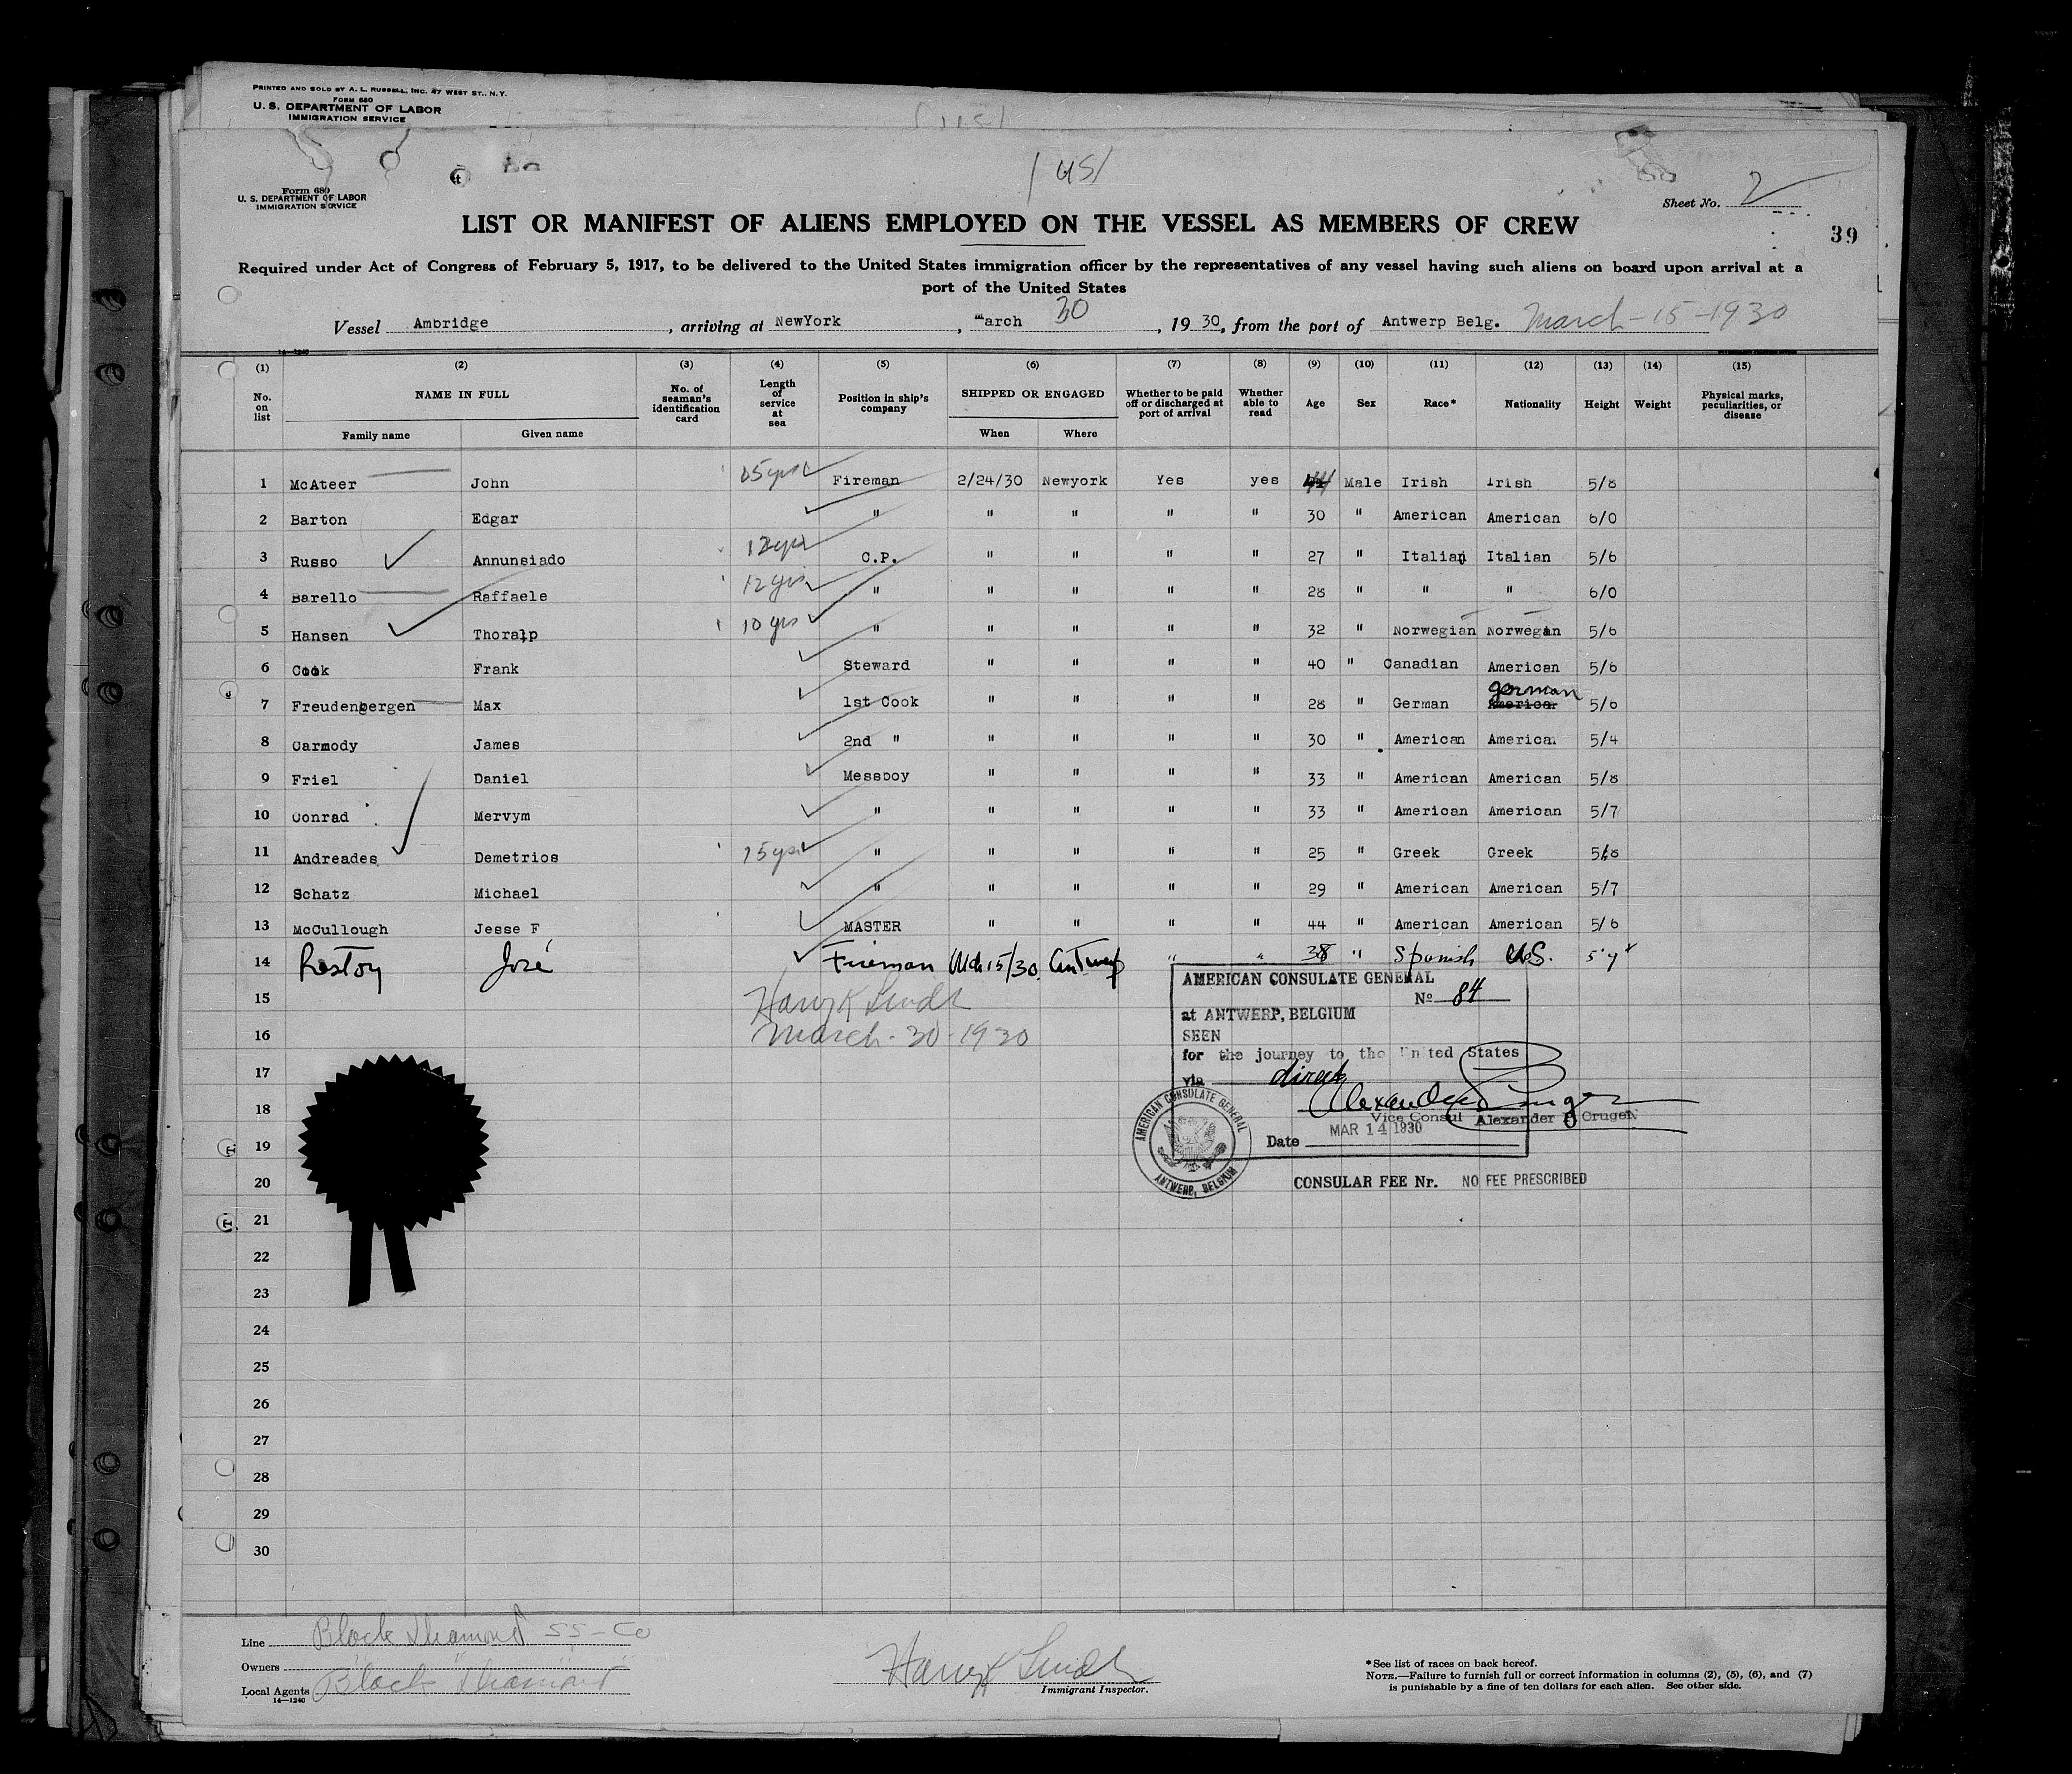 PRINTED AND SOLD BY A. L. RUSSELL, INC. 47 WEST ST., N.Y.
FORM 680
U. S. DEPARTMENT OF LABOR
IMMIGRATION SERVICE
Form 680
U. S. DEPARTMENT OF LABOR
IMMIGRATION SERVICE
Sheet No. 2
LIST OR MANIFEST OF ALIENS EMPLOYED ON THE VESSEL AS MEMBERS OF CREW
39
Required under Act of Congress of February 5, 1917, to be delivered to the United States immigration officer by the representatives of any vessel having such aliens on board upon arrival at a
port of the United States
Vessel Ambridge, arriving at NewYork, march 30, 19 30, from the port of Antwerp Belg. March-15-1930
14-1240
(1) (2) (3) (4) (5) (6) (7) (8) (9) (10) (11) (12) (13) (14) (15)
No. on list NAME IN FULL No. of seaman's identification card Length of service at sea Position in ship's company SHIPPED OR ENGAGED Whether to be paid off or discharged at port of arrival Whether able to read Age Sex Race* Nationality Height Weight Physical marks, peculiarities, or disease
Family name Given name When Where
1 McAteer John 15yrs Fireman 2/24/30 Newyork Yes yes 44 Male Irish Irish 5/8
2 Barton Edgar " " " " " 30 " American American 6/0
3 Russo Annunsiado 12yrs C.P. " " " " 27 " Italian Italian 5/6
4 Barello Raffaele 12 yrs " " " " " 28 " " " 6/0
5 Hansen Thoralp 10 yrs " " " " " 32 " Norwegian Norwegin 5/6
6 Cook Frank Steward " " " " 40 " Canadian American 5/6
7 Freudenbergen Max 1st Cook " " " " 28 " German American german 5/6
8 Carmody James 2nd " " " " " 30 " American American 5/4
9 Friel Daniel Messboy " " " " 33 " American American 5/8
10 Conrad Mervym " " " " " 33 " American American 5/7
11 Andreades Demetrios 15yrs " " " " " 25 " Greek Greek 5/8
12 Schatz Michael " " " " " 29 " American American 5/7
13 McCullough Jesse F MASTER " " " " 44 " American American 5/6
14 Restoy José Fireman Mch 15/30 Antwerp " " 38 " Spanish U.S. 5'4"
15 Harry K
16 March-30-1930
17
18
19
20
21
22
23
24
25
26
27
28
29
30
AMERICAN CONSULATE GENERAL
No 84
at ANTWERP, BELGIUM
SEEN
for the journey to the United States
via direct
Vice Consul Alexander P Cruger
Date MAR 14 1930
AMERICAN CONSULATE GENERAL
ANTWERP, BELGIUM
CONSULAR FEE Nr. NO FEE PRESCRIBED
Line Black Diamond SS-Co
Owners " " "
Local Agents Black Diamond
14-1240
Harry K
Immigrant Inspector.
* See list of races on back hereof.
NOTE.—Failure to furnish full or correct information in columns (2), (5), (6), and (7)
is punishable by a fine of ten dollars for each alien. See other side.